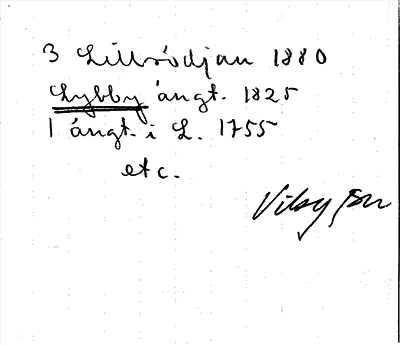 3 Lillrödjan 1880
Lybby ångt. 1825
1 ångt. i L. 1755
etc.